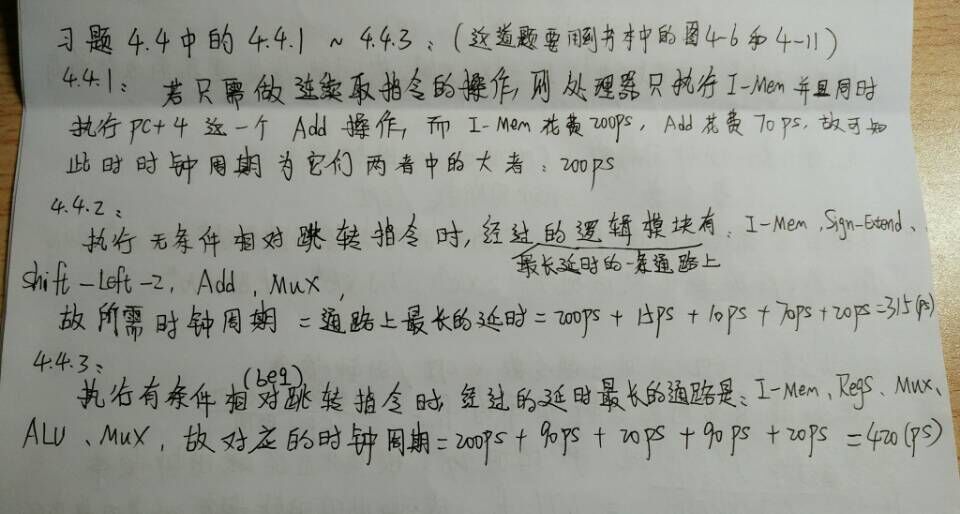 习题4.4中的4.4.1~4.4.3:(这道题要用到书本中的图4-6和4-11)
4.4.1: 若只需做连续取指令的操作,则处理器只执行I-Mem并且同时
执行PC+4这一个Add操作,而I-Mem花费200ps,Add花费70ps,故可知
此时时钟周期为它们两者中的大者:200ps
4.4.2:
执行无条件相对跳转指令时,经过的逻辑模块有:I-Mem,Sign-Extend、
最长延时的一条通路上
Shift-Left-2,Add,Mux,
故所需时钟周期=通路上最长的延时=200ps+15ps+10ps+70ps+20ps=315(ps)
4.4.3:
(beq)
执行有条件相对跳转指令时,经过的延时最长的通路是:I-Mem、Regs、Mux、
ALU、Mux,故对应的时钟周期=200ps+90ps+20ps+90ps+20ps=420(ps)